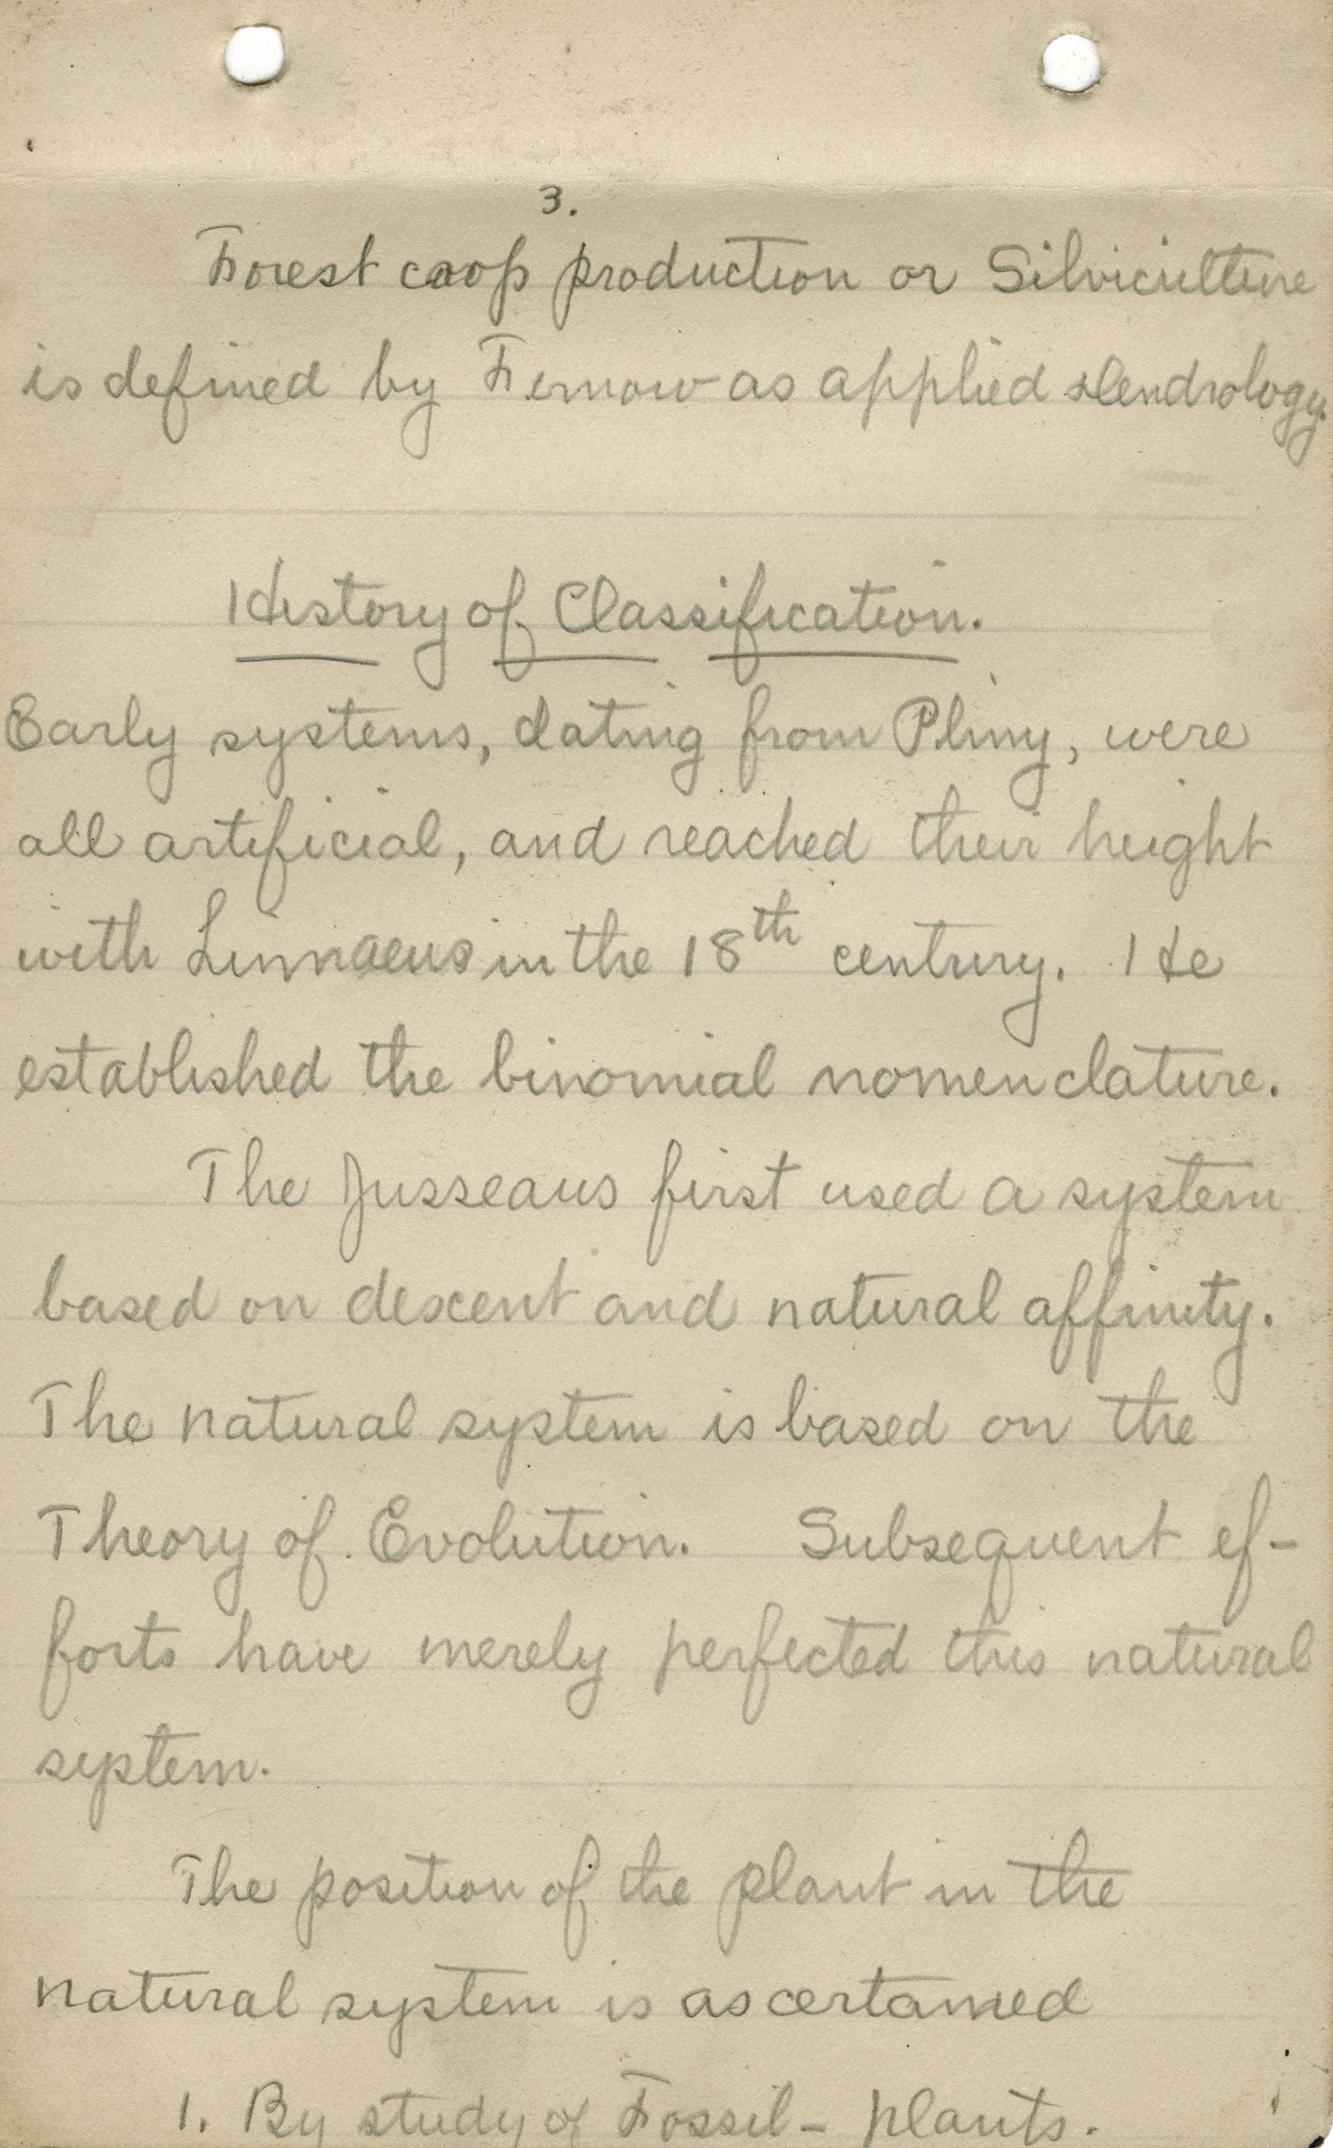 3.
Forest crop production or Silviculture
is defined by Fernow as applied dendrology.
History of Classification.
Early systems, dating from Pliny, were
all artificial, and reached their height
with Linnaeus in the 18th century. He
established the binomial nomenclature.
The Jusseaus first used a system
based on descent and natural affinity.
The natural system is based on the
Theory of Evolution. Subsequent ef-
forts have merely perfected this natural
system.
The position of the plant in the
natural system is ascertained
1. By study of Fossil- plants.